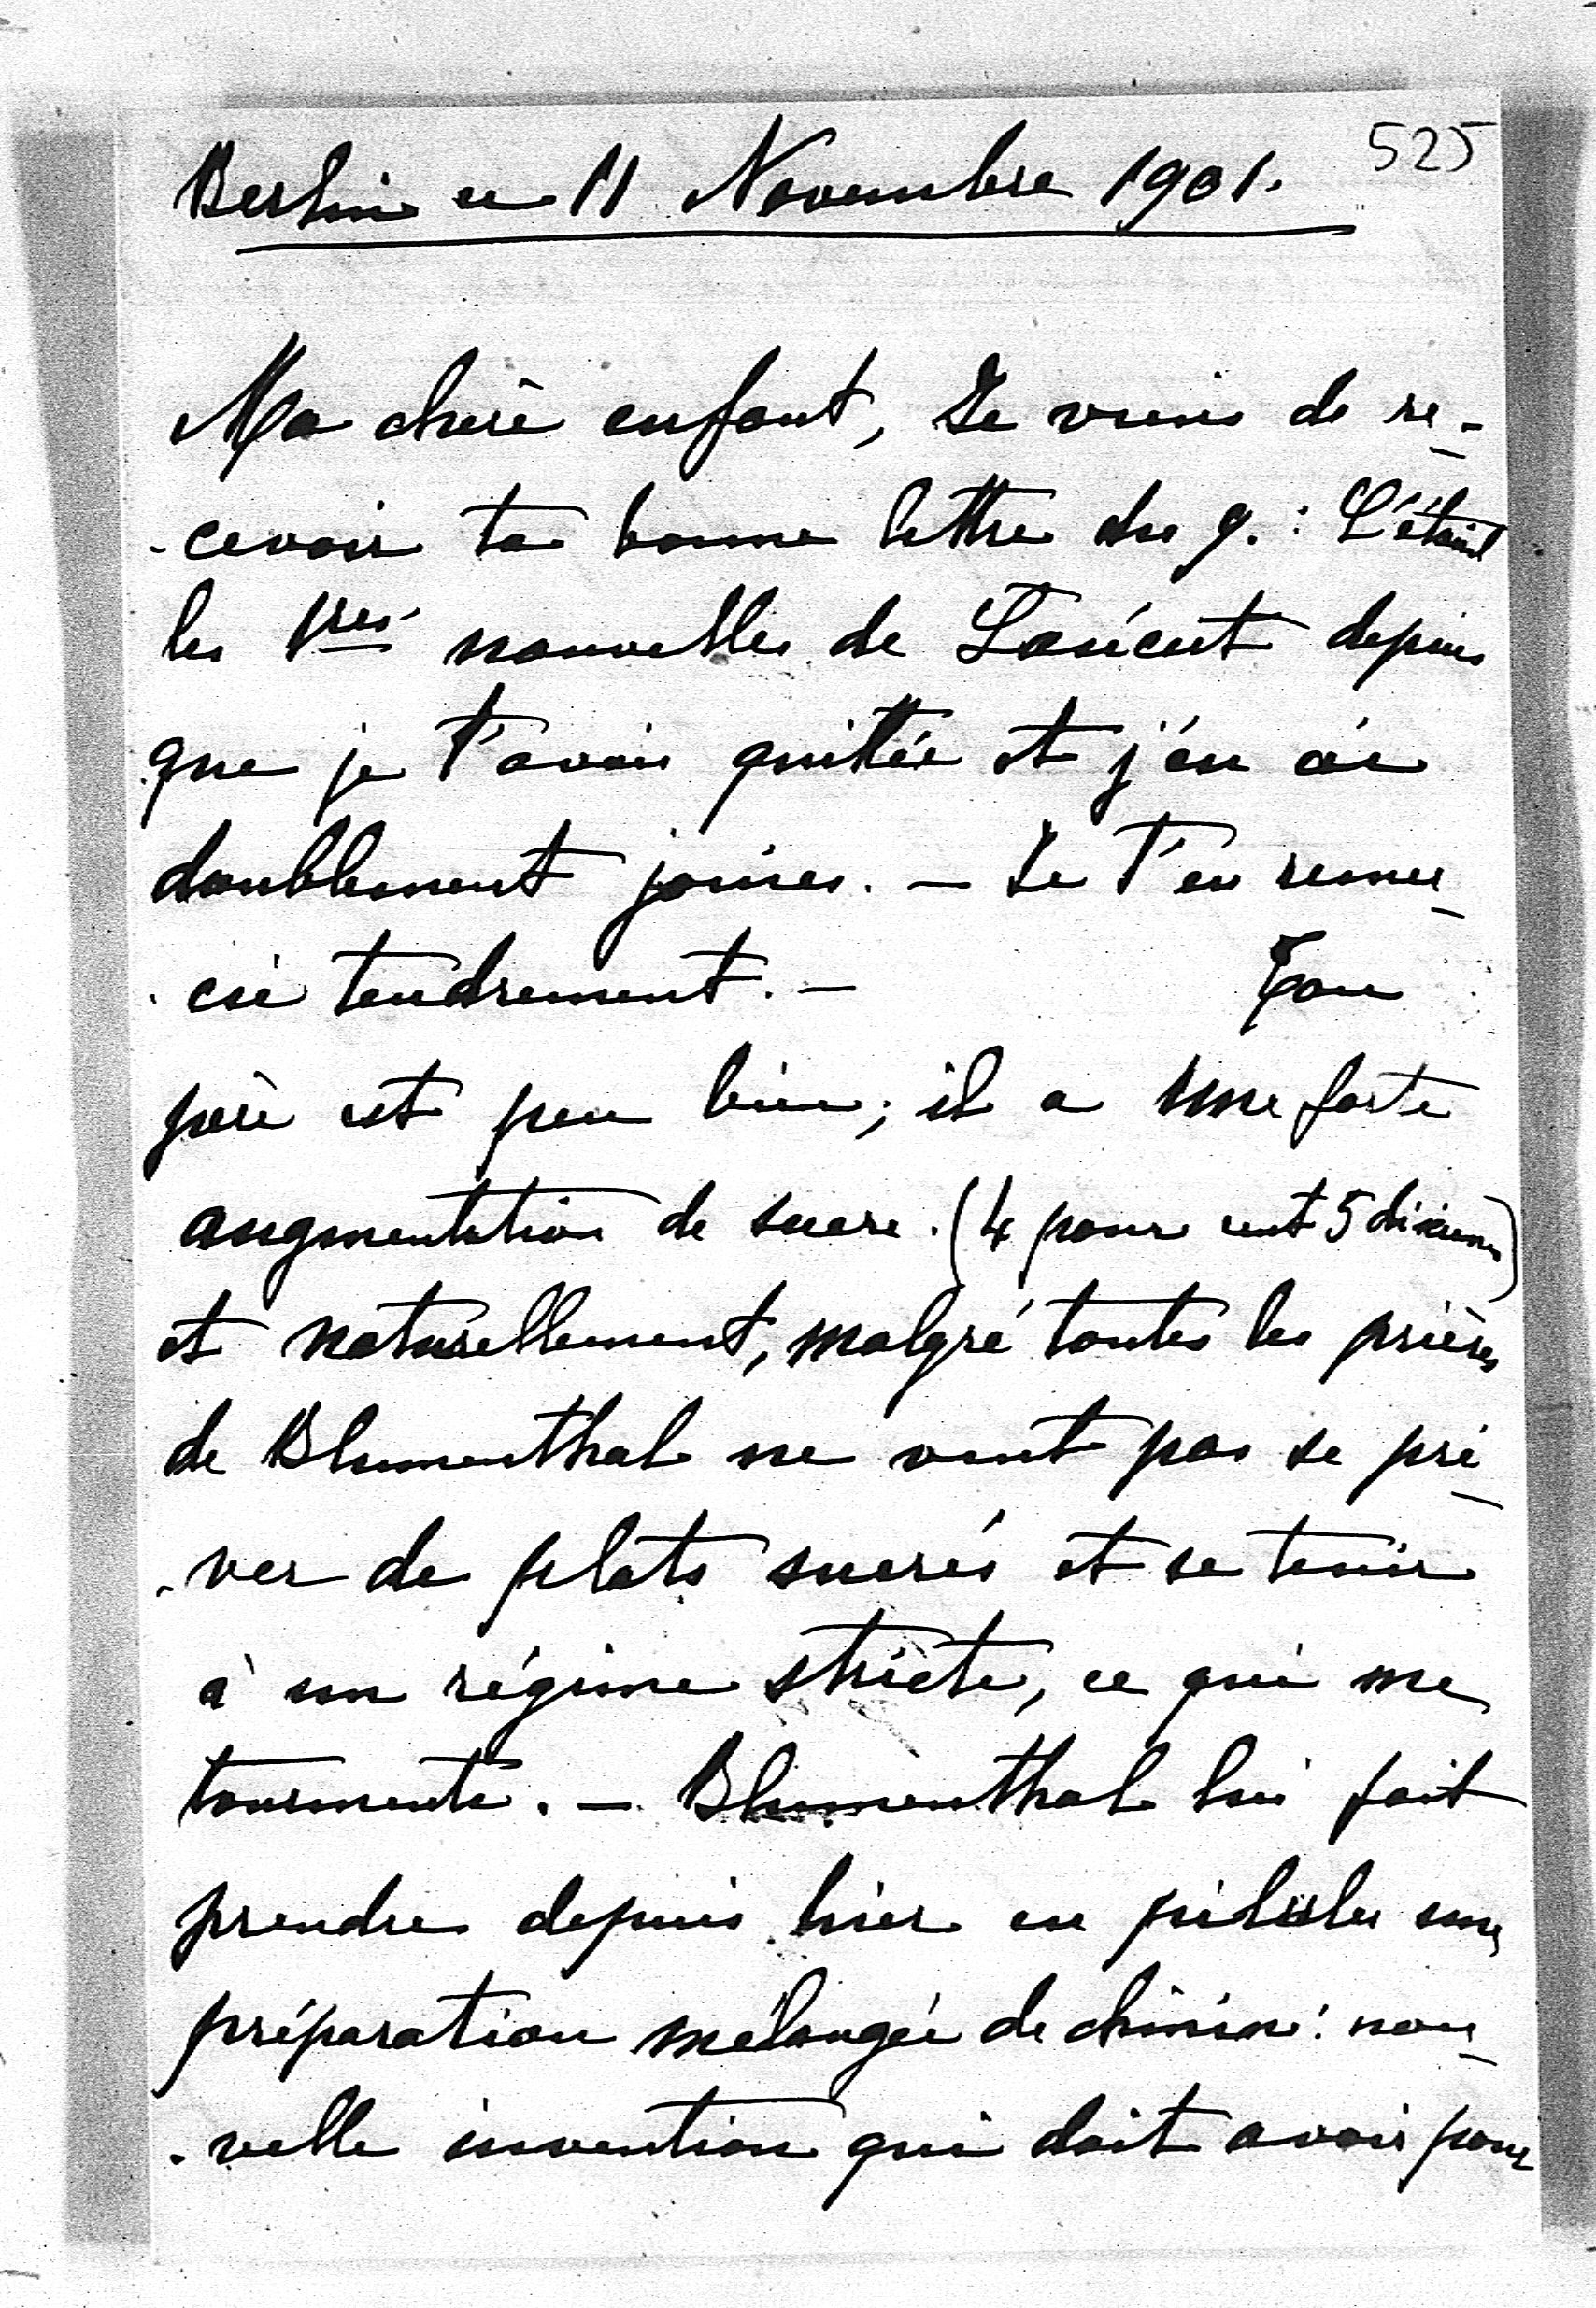 525
Berlin ce 11 Novembre 1901.
Ma chère enfant, Je viens de re-
-cevoir ta bonne lettre du 9. : C'était
les 1res nouvelles de Lańcut depuis
que je t'avais quittée et j'en ai
doublement joüies. — Je t'en remer-
cie tendrement. — Ton
père est peu bien ; il a une forte
augmentation de sucre. (4 pour cent 5 dixièmes)
et naturellement, malgré toutes les prières
de Blumenthal ne veut pas se pri-
-ver de plats sucrés et se tenir
à un régime stricte, ce qui me
tourmente. — Blumenthal lui fait
prendre depuis hier en pilules une
préparation mélangée de chinine : nou-
-velle invention qui doit avoir pour